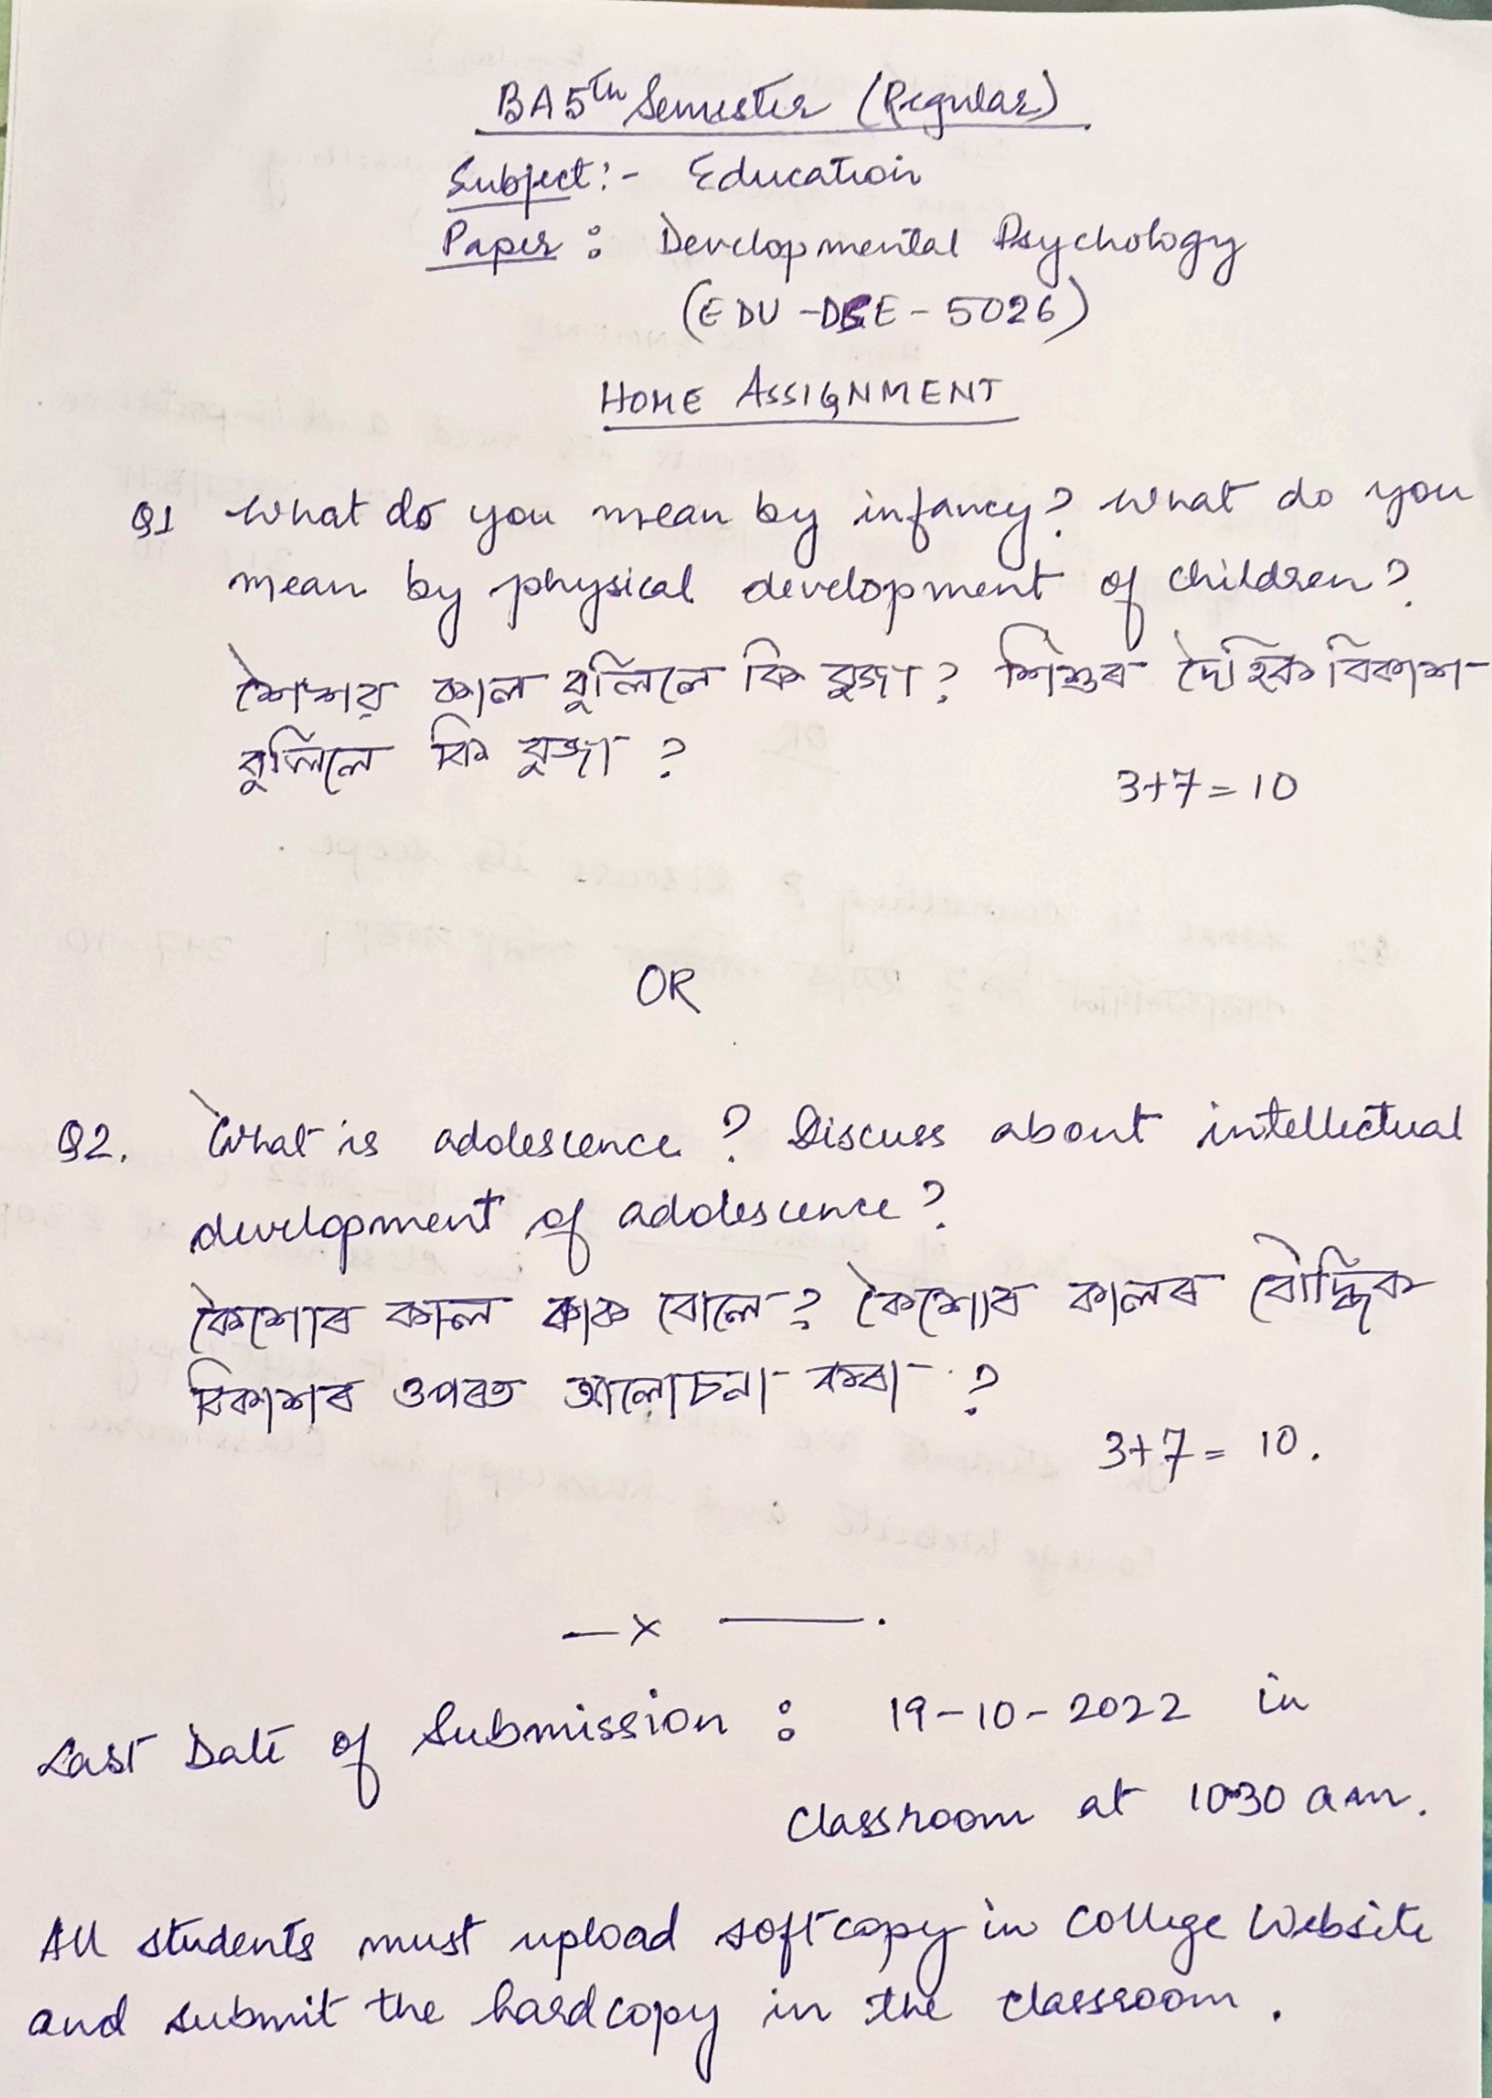 BA 5th Semester (Regular)
Subject :- Education
Paper : Developmental Psychology
(EDU-DSE-5026)
HOME ASSIGNMENT
Q1 What do you mean by infancy? What do you
mean by physical development of children?
শৈশৱ কাল বুলিলে কি বুজা? শিশুৰ দৈহিক বিকাশ
বুলিলে কি বুজা ?
3+7=10
OR
Q2. What is adolescence ? Discuss about intellectual
development of adolescence?
কৈশোৰ কাল কাক বোলে? কৈশোৰ কালৰ বৌদ্ধিক
বিকাশৰ ওপৰত আলোচনা কৰা ?
3+7= 10.
—x ——.
Last Date of Submission : 19-10-2022 in
Classroom at 10:30 am.
All students must upload softcopy in College Website
and submit the hardcopy in the classroom.